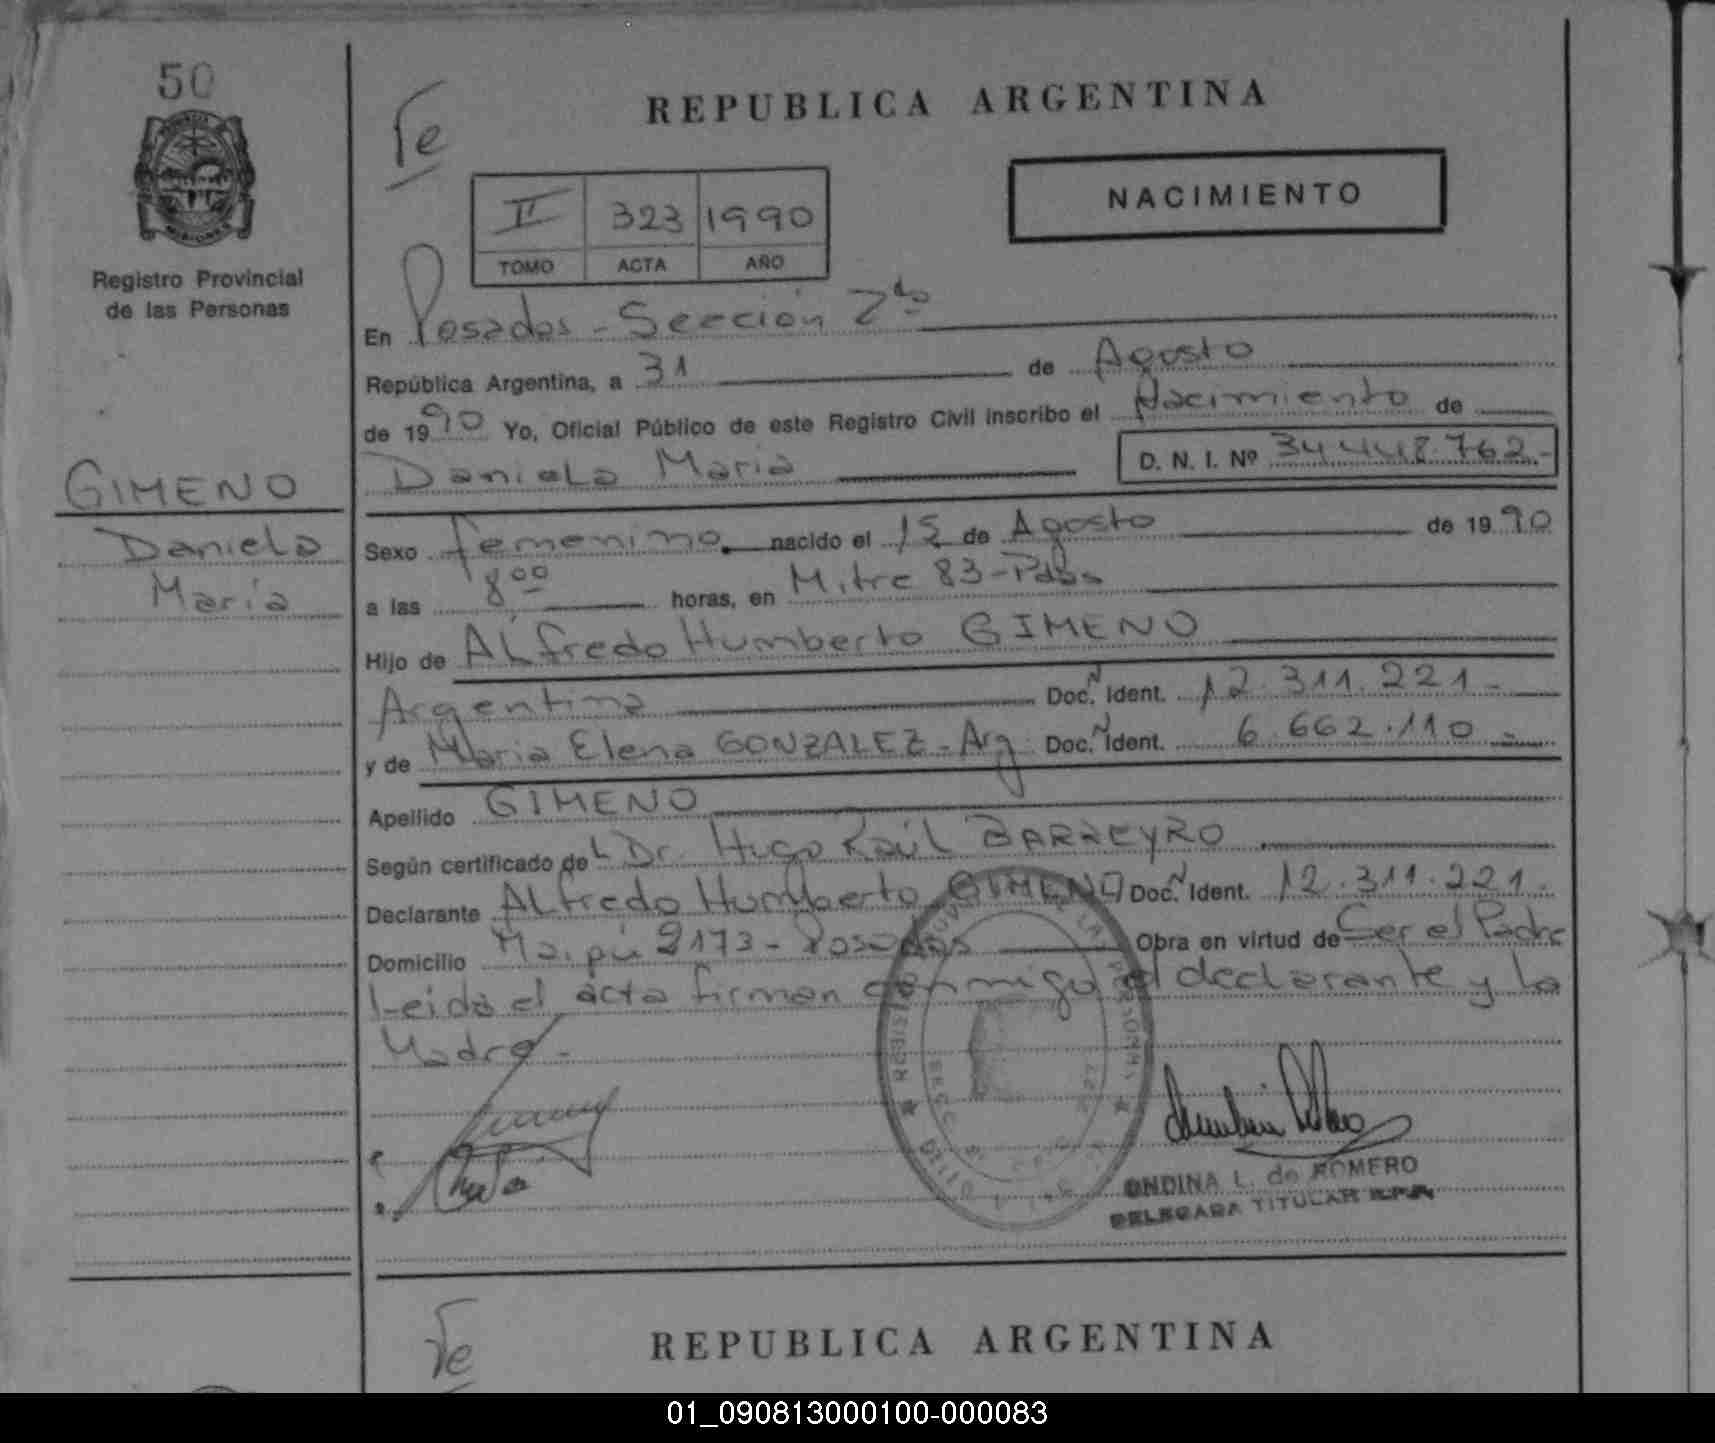 50
REPUBLICA ARGENTINA
Te
II 323 1990
TOMO ACTA AÑO
NACIMIENTO
Registro Provincial
de las Personas
En Posadas - Sección 2da
República Argentina, a 31 de Agosto
de 1990 Yo, Oficial Público de este Registro Civil inscribo el Nacimiento de
Daniela Maria D. N. I. Nº 34.448.762.-
GIMENO
Daniela
María
Sexo femenino. nacido el 12 de Agosto de 1990
a las 8oo horas, en Mitre 83-Pdas
Hijo de Alfredo Humberto GIMENO
Argentina Doc. N Ident. 12.311.221-
y de Maria Elena GONZALEZ-Arg Doc. N Ident. 6.662.110-
Apellido GIMENO
Según certificado del Dr. Hugo Raúl BARREYRO
Declarante Alfredo Humberto GIMENO Doc. N Ident. 12.311.221.
Domicilio Maipú 2173 - Posadas Obra en virtud de Ser el Padre
Leida el acta firman conmigo el declarante y la
Madre-
ONDINA L. de ROMERO
DELEGADA TITULAR R.P.P.
Te
REPUBLICA ARGENTINA
01_090813000100-000083